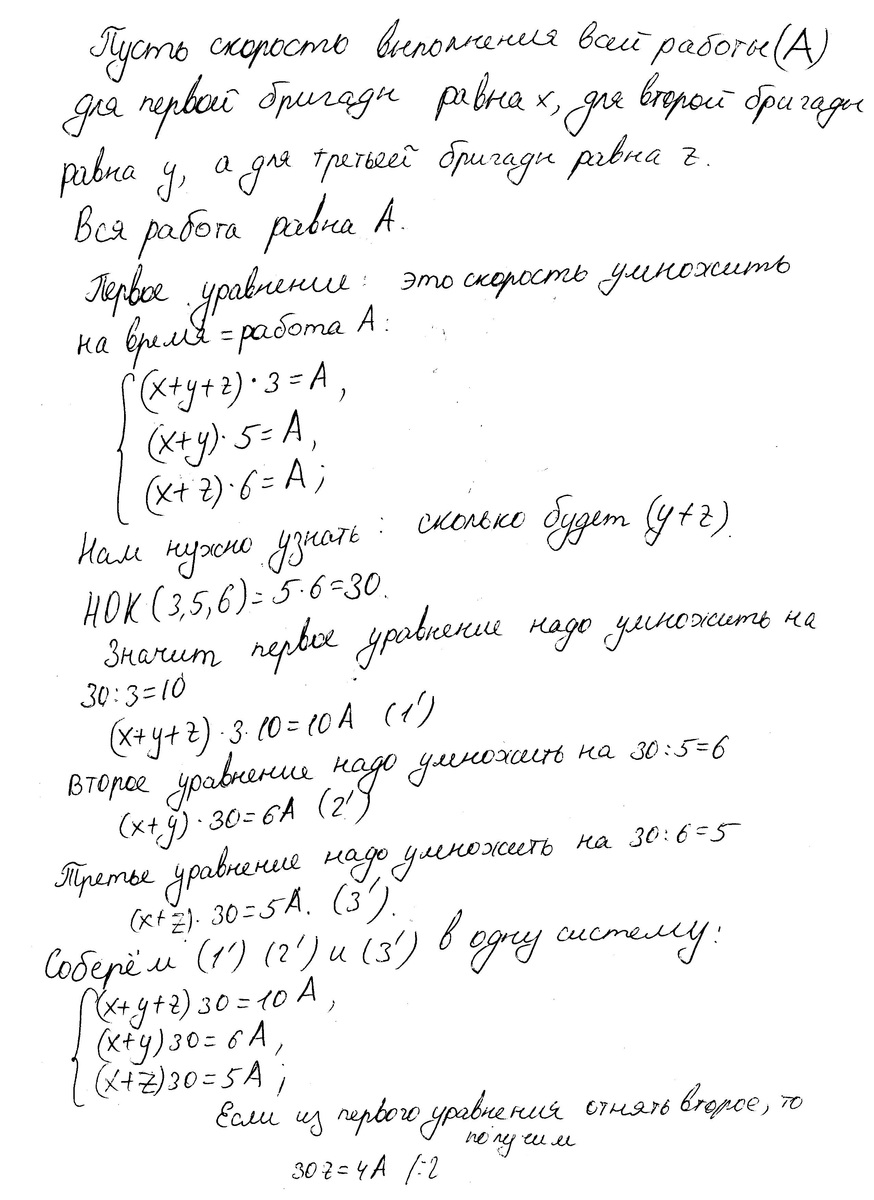 Пусть скорость выполнения всей работы (А)
для первой бригады равна x, для второй бригады
равна y, а для третьей бригады равна z.
Вся работа равна А.
Первое уравнение: это скорость умножить
на время = работа А:
(x+y+z)·3=A,
(x+y)·5=A,
(x+z)·6=A;
Нам нужно узнать: сколько будет (y+z).
НОК(3,5,6)=5·6=30.
Значит первое уравнение надо умножить на
30:3=10
(x+y+z)·3·10=10A (1')
Второе уравнение надо умножить на 30:5=6
(x+y)·30=6A (2')
Третье уравнение надо умножить на 30:6=5
(x+z)·30=5A. (3').
Соберём (1') (2') и (3') в одну систему:
(x+y+z)30=10A,
(x+y)30=6A,
(x+z)30=5A;
Если из первого уравнения отнять второе, то
получим
30z=4A /:2